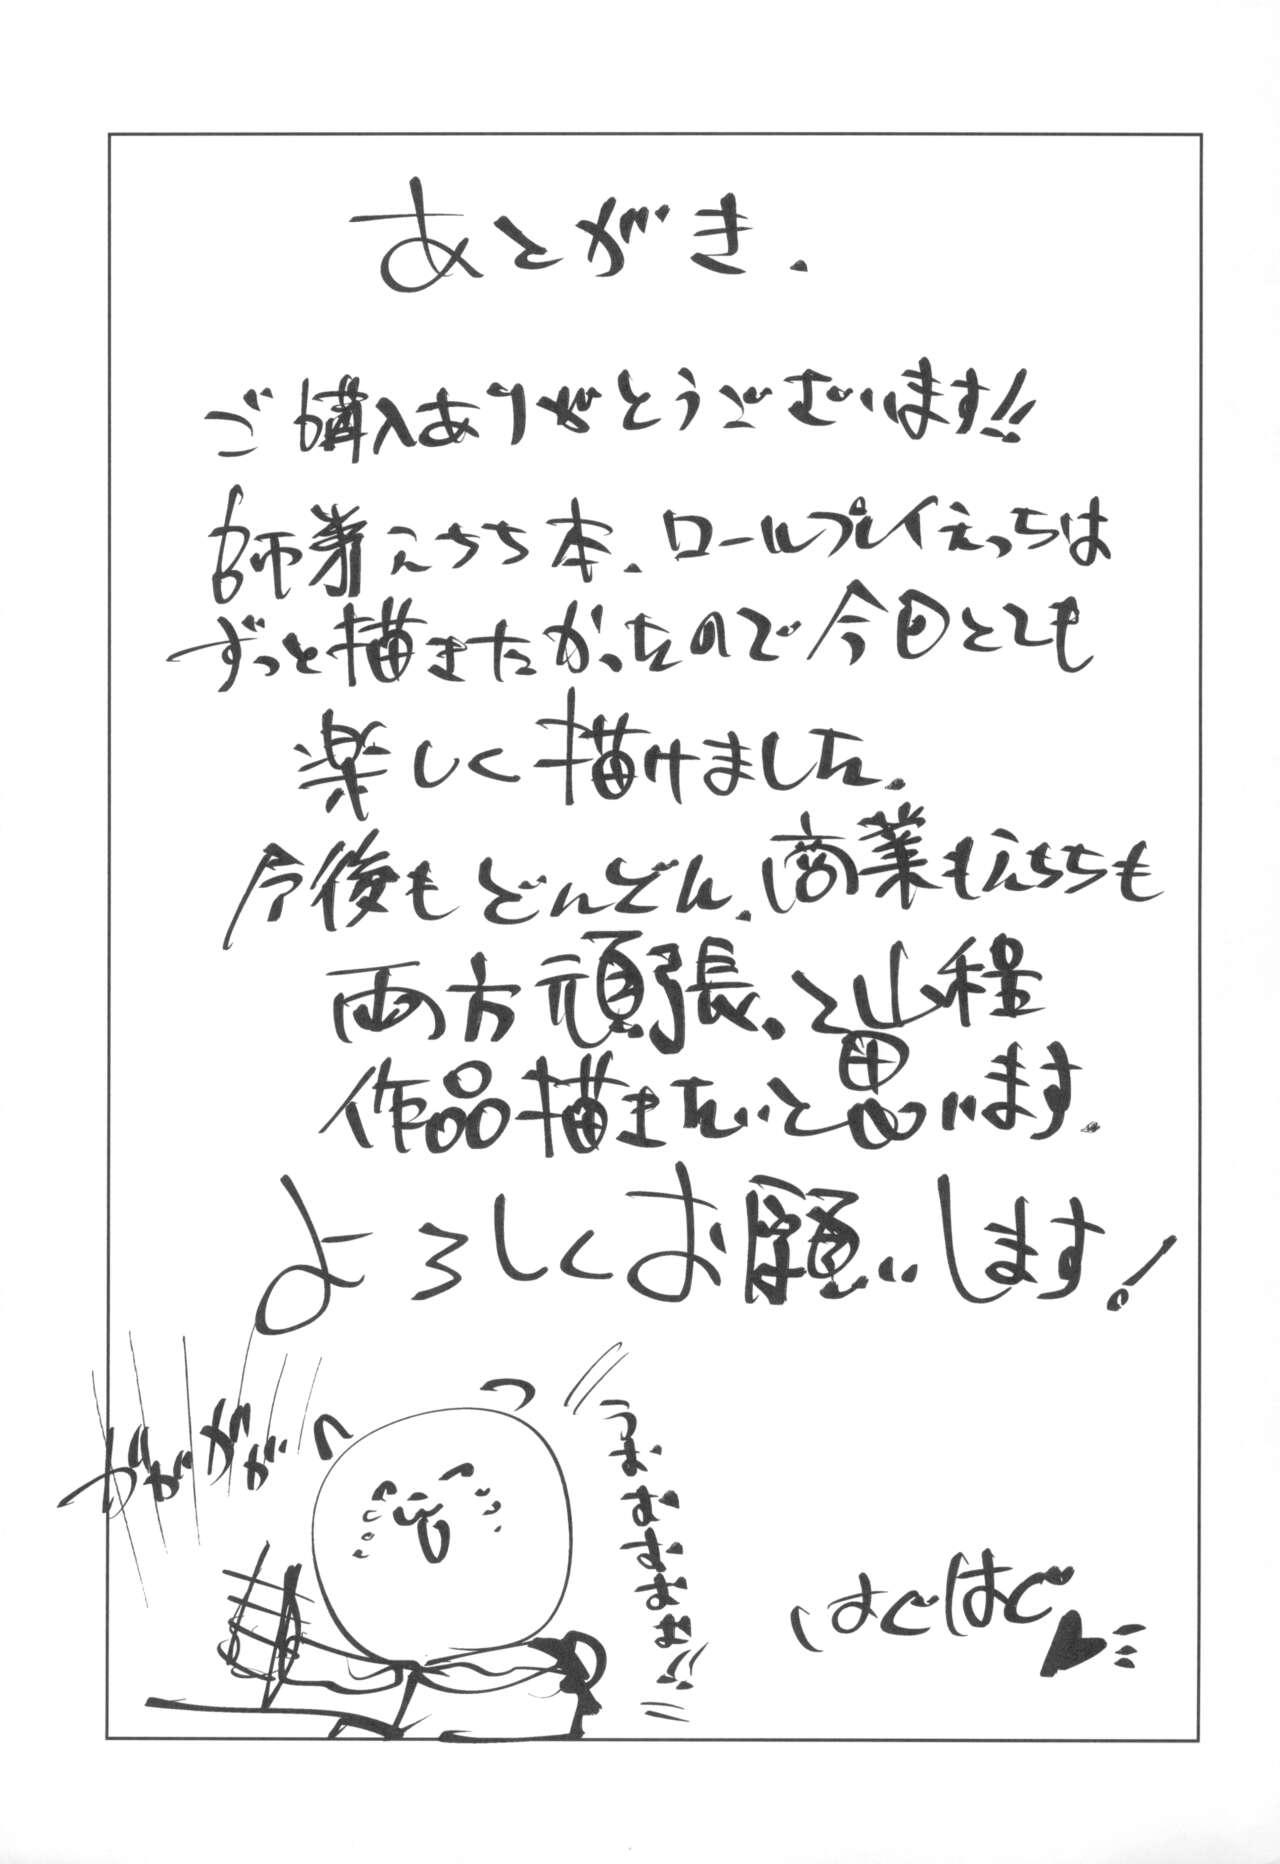 あとがき.
ご購入ありがとうございます!!
師弟えちち本、ロールプレイえっちは
ずっと描きたかったので今回とても
楽しく描けました。
今後もどんどん、商業もえちちも
両方頑張、と出程
作品描きたいと思います。
よろしくお願いします!
ががガガ
うおおおおおお!!
はぐはぐ♥